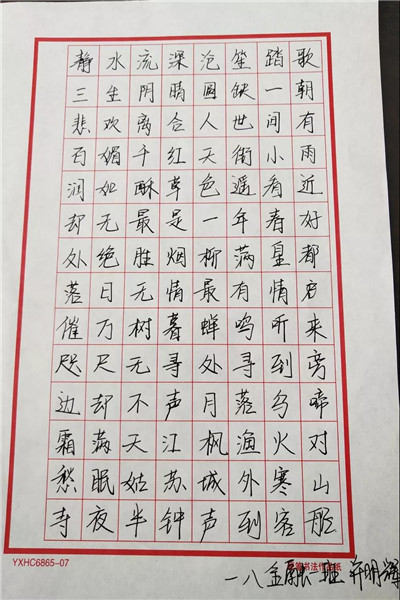 静水流深沧笙踏歌
三生阴晴圆缺一朝
悲欢离合人世间有
百媚千红天街小雨
润如酥草色遥看近
却无最是一年春好
处绝胜烟柳满皇都
落日无情最有情
催万树暮蝉鸣听来
咫尺无寻处寻到旁
边却不声月落乌啼
霜满天江枫渔火对
愁眠姑苏城外寒山
寺夜半钟声到客船
YXHC6865-07
一八金融 班